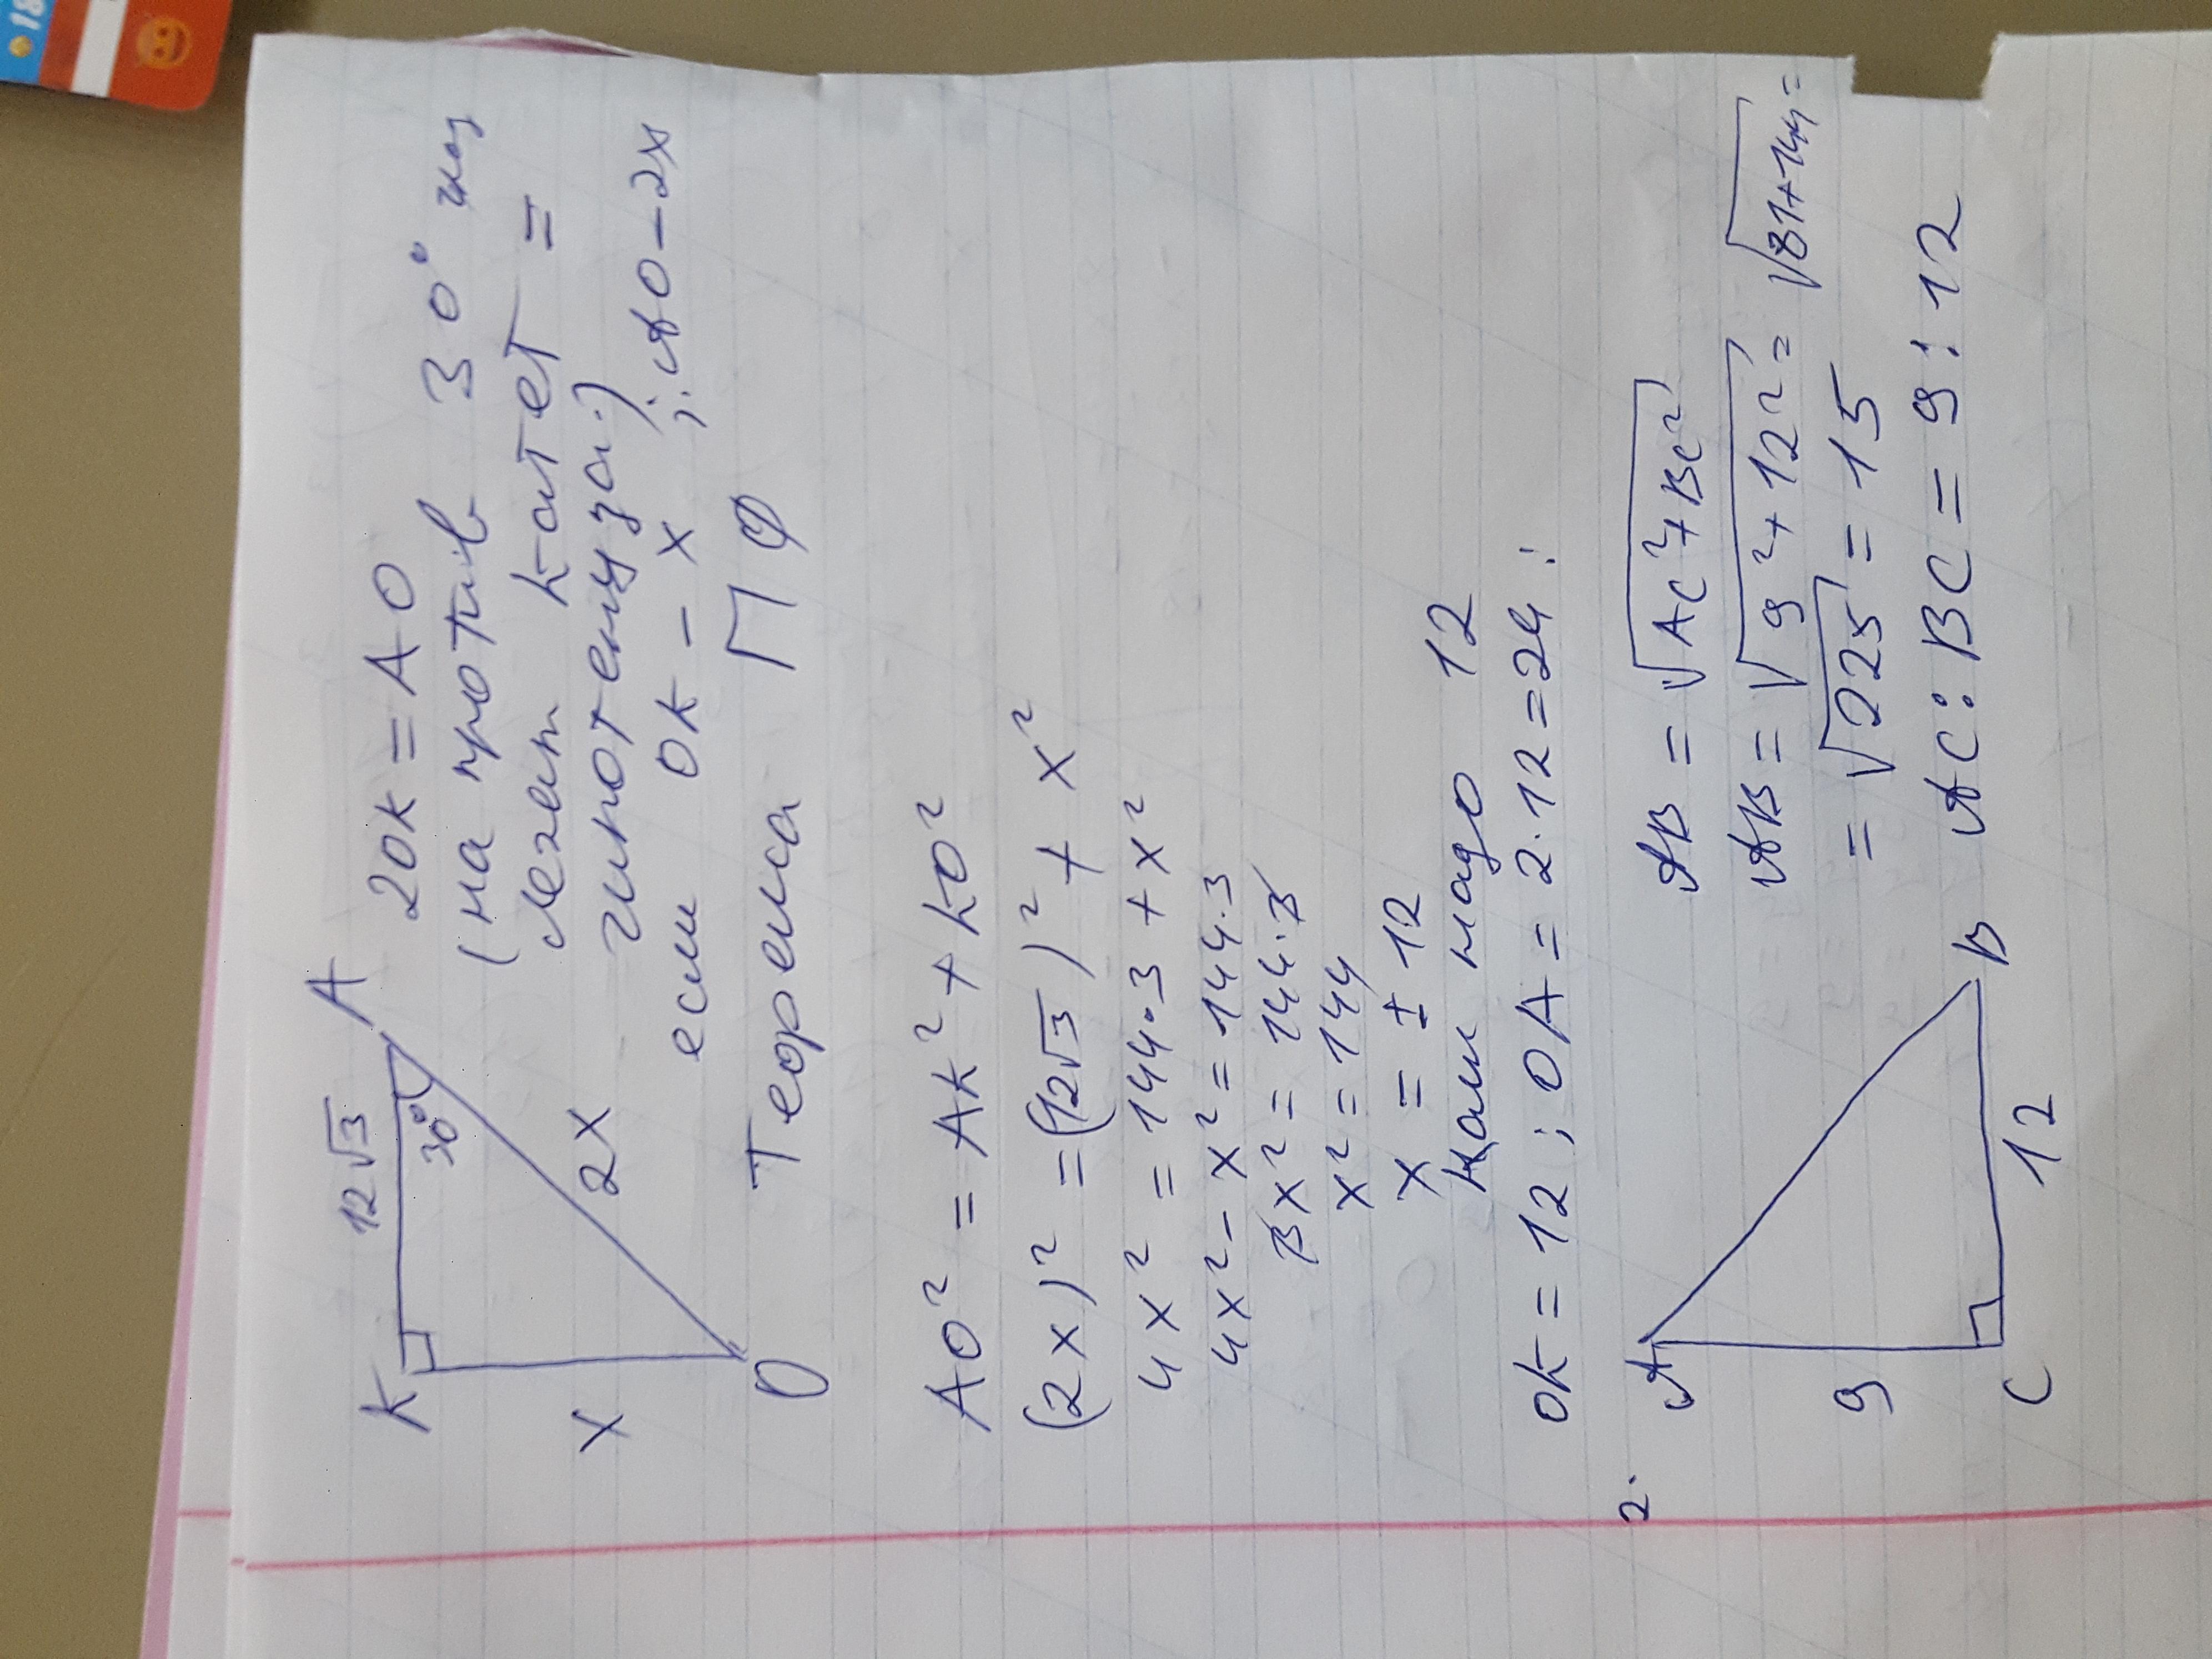 K 12√3 A
30°
x 2x
O
2OK = AO
(на против 30°
лежит катет =
гипотенуза)
если OK - x ; AO - 2x
Теорема ПФ
AO² = AK² + KO²
(2x)² = (12√3)² + x²
4x² = 144·3 + x²
4x² - x² = 144·3
3x² = 144·3
x² = 144
x = ± 12
Нам надо 12
OK = 12 ; OA = 2·12 = 24 ;
2.
A
9
C 12 B
AB = √AC²+BC²
AB = √9²+12² = √81+144 =
= √225 = 15
AC : BC = 9 : 12
18